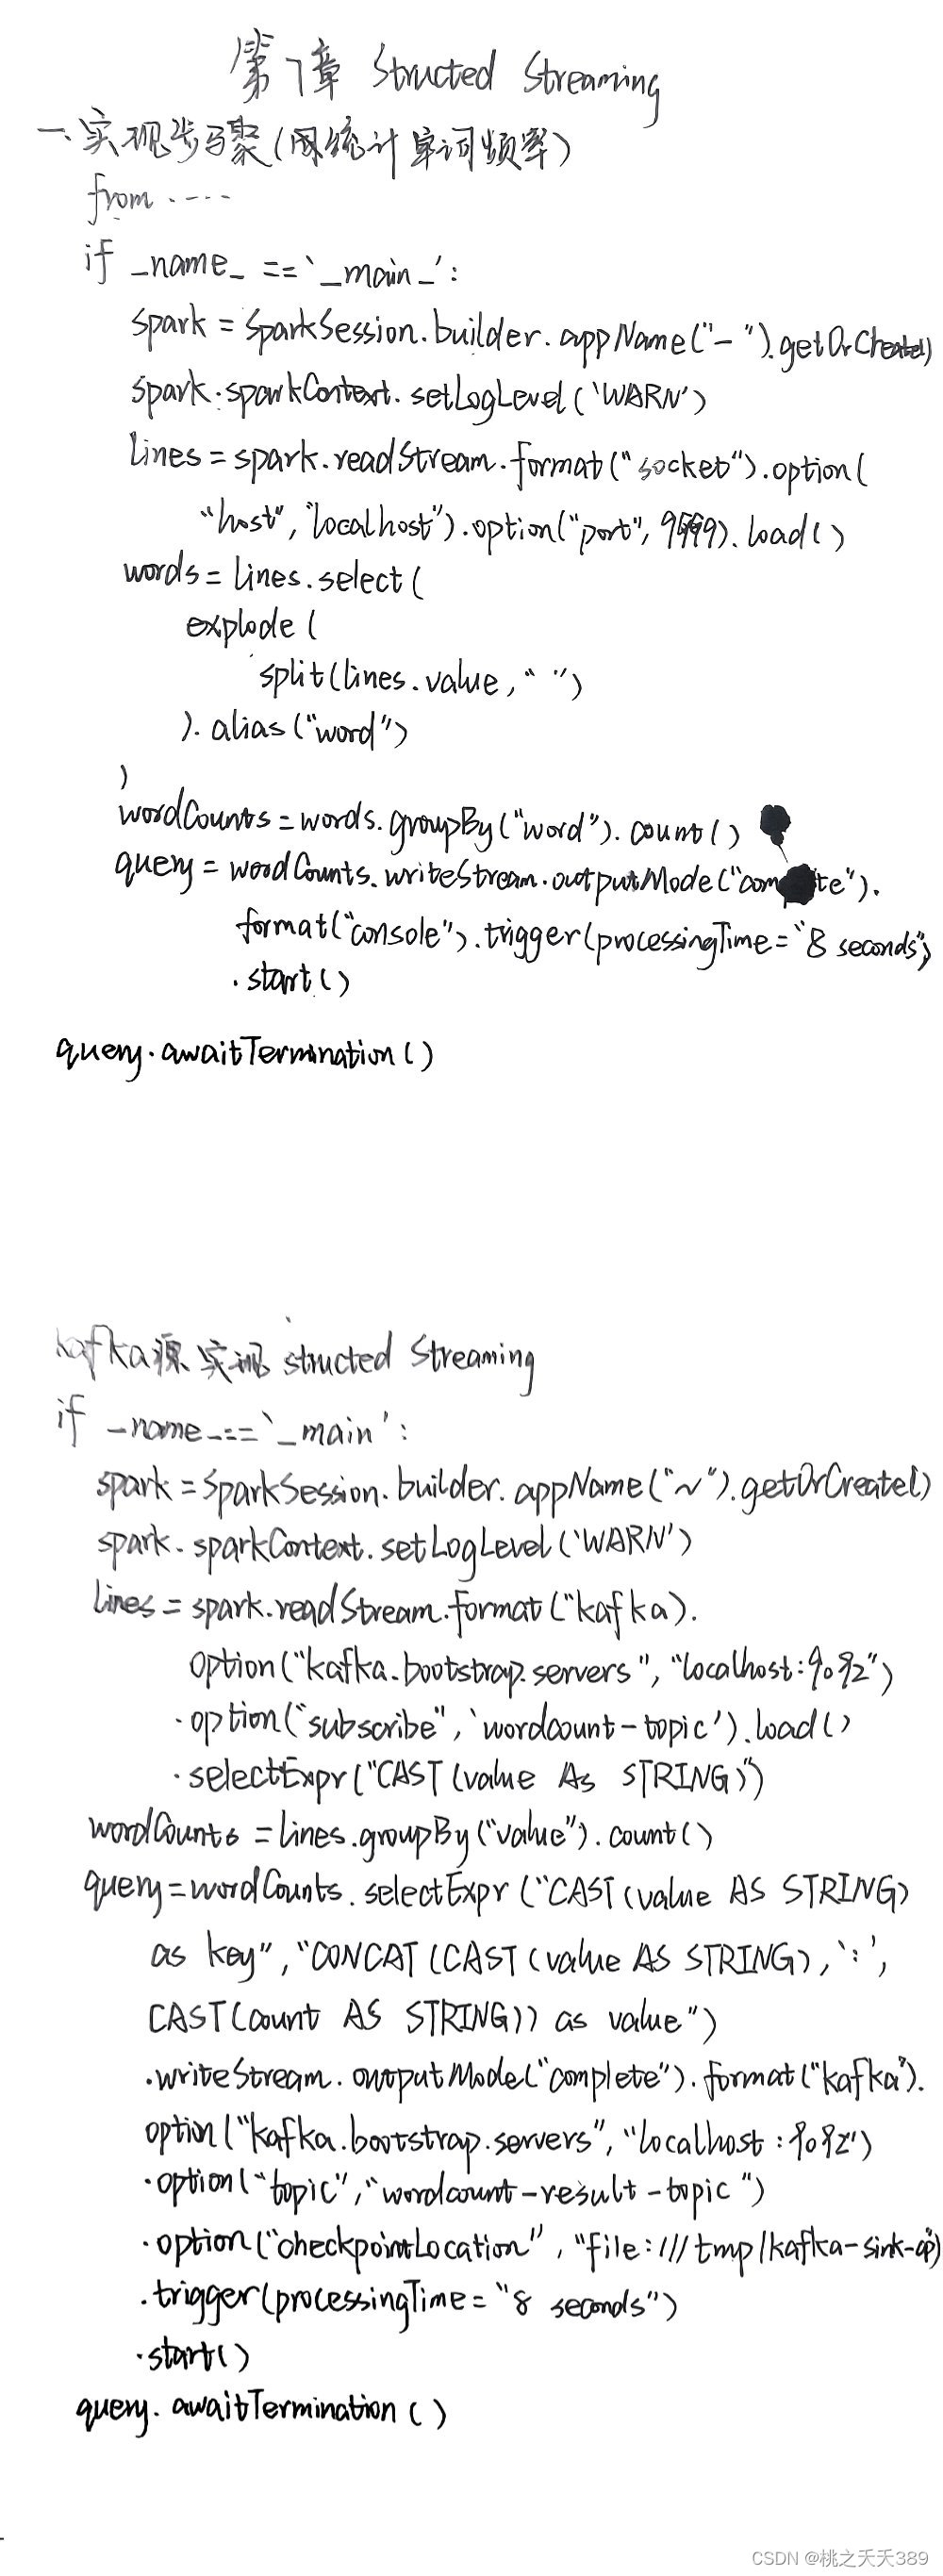 第7章 Structed Streaming
一、实现步马聚(网统计单词频率)
from ....
if _name_ == '_main_':
spark = SparkSession.builder.appName("-").getOrCreate()
spark.sparkContext.setLogLevel('WARN')
lines = spark.readStream.format("socket").option(
"host","localhost").option("port", 9999).load()
words = lines.select(
explode(
split(lines.value, " ")
).alias("word")
)
wordCounts = words.groupBy("word").count()
query = wordCounts.writeStream.outputMode("com te").
format("console").trigger(processingTime="8 seconds")
.start()
query.awaitTermination()
kafka源实现 structed Streaming
if _name_=='_main':
spark = SparkSession.builder.appName("~").getOrCreate()
spark.sparkContext.setLogLevel('WARN')
lines = spark.readStream.format("kafka).
option("kafka.bootstrap.servers", "localhost:9092")
.option("subscribe", 'wordcount-topic').load()
.selectExpr("CAST(value As STRING)")
wordCounts = lines.groupBy("value").count()
query=wordCounts.selectExpr("CAST(value AS STRING)
as key","CONCAT(CAST(value AS STRING),':',
CAST(count AS STRING)) as value")
.writeStream.outputMode("complete").format("kafka").
option("kafka.bootstrap.servers", "localhost:9092")
.option("topic","wordcount-result-topic")
.option("checkpointLocation", "file:///tmp/kafka-sink-cp")
.trigger(processingTime="8 seconds")
.start()
query.awaitTermination()
CSDN @桃之夭夭389